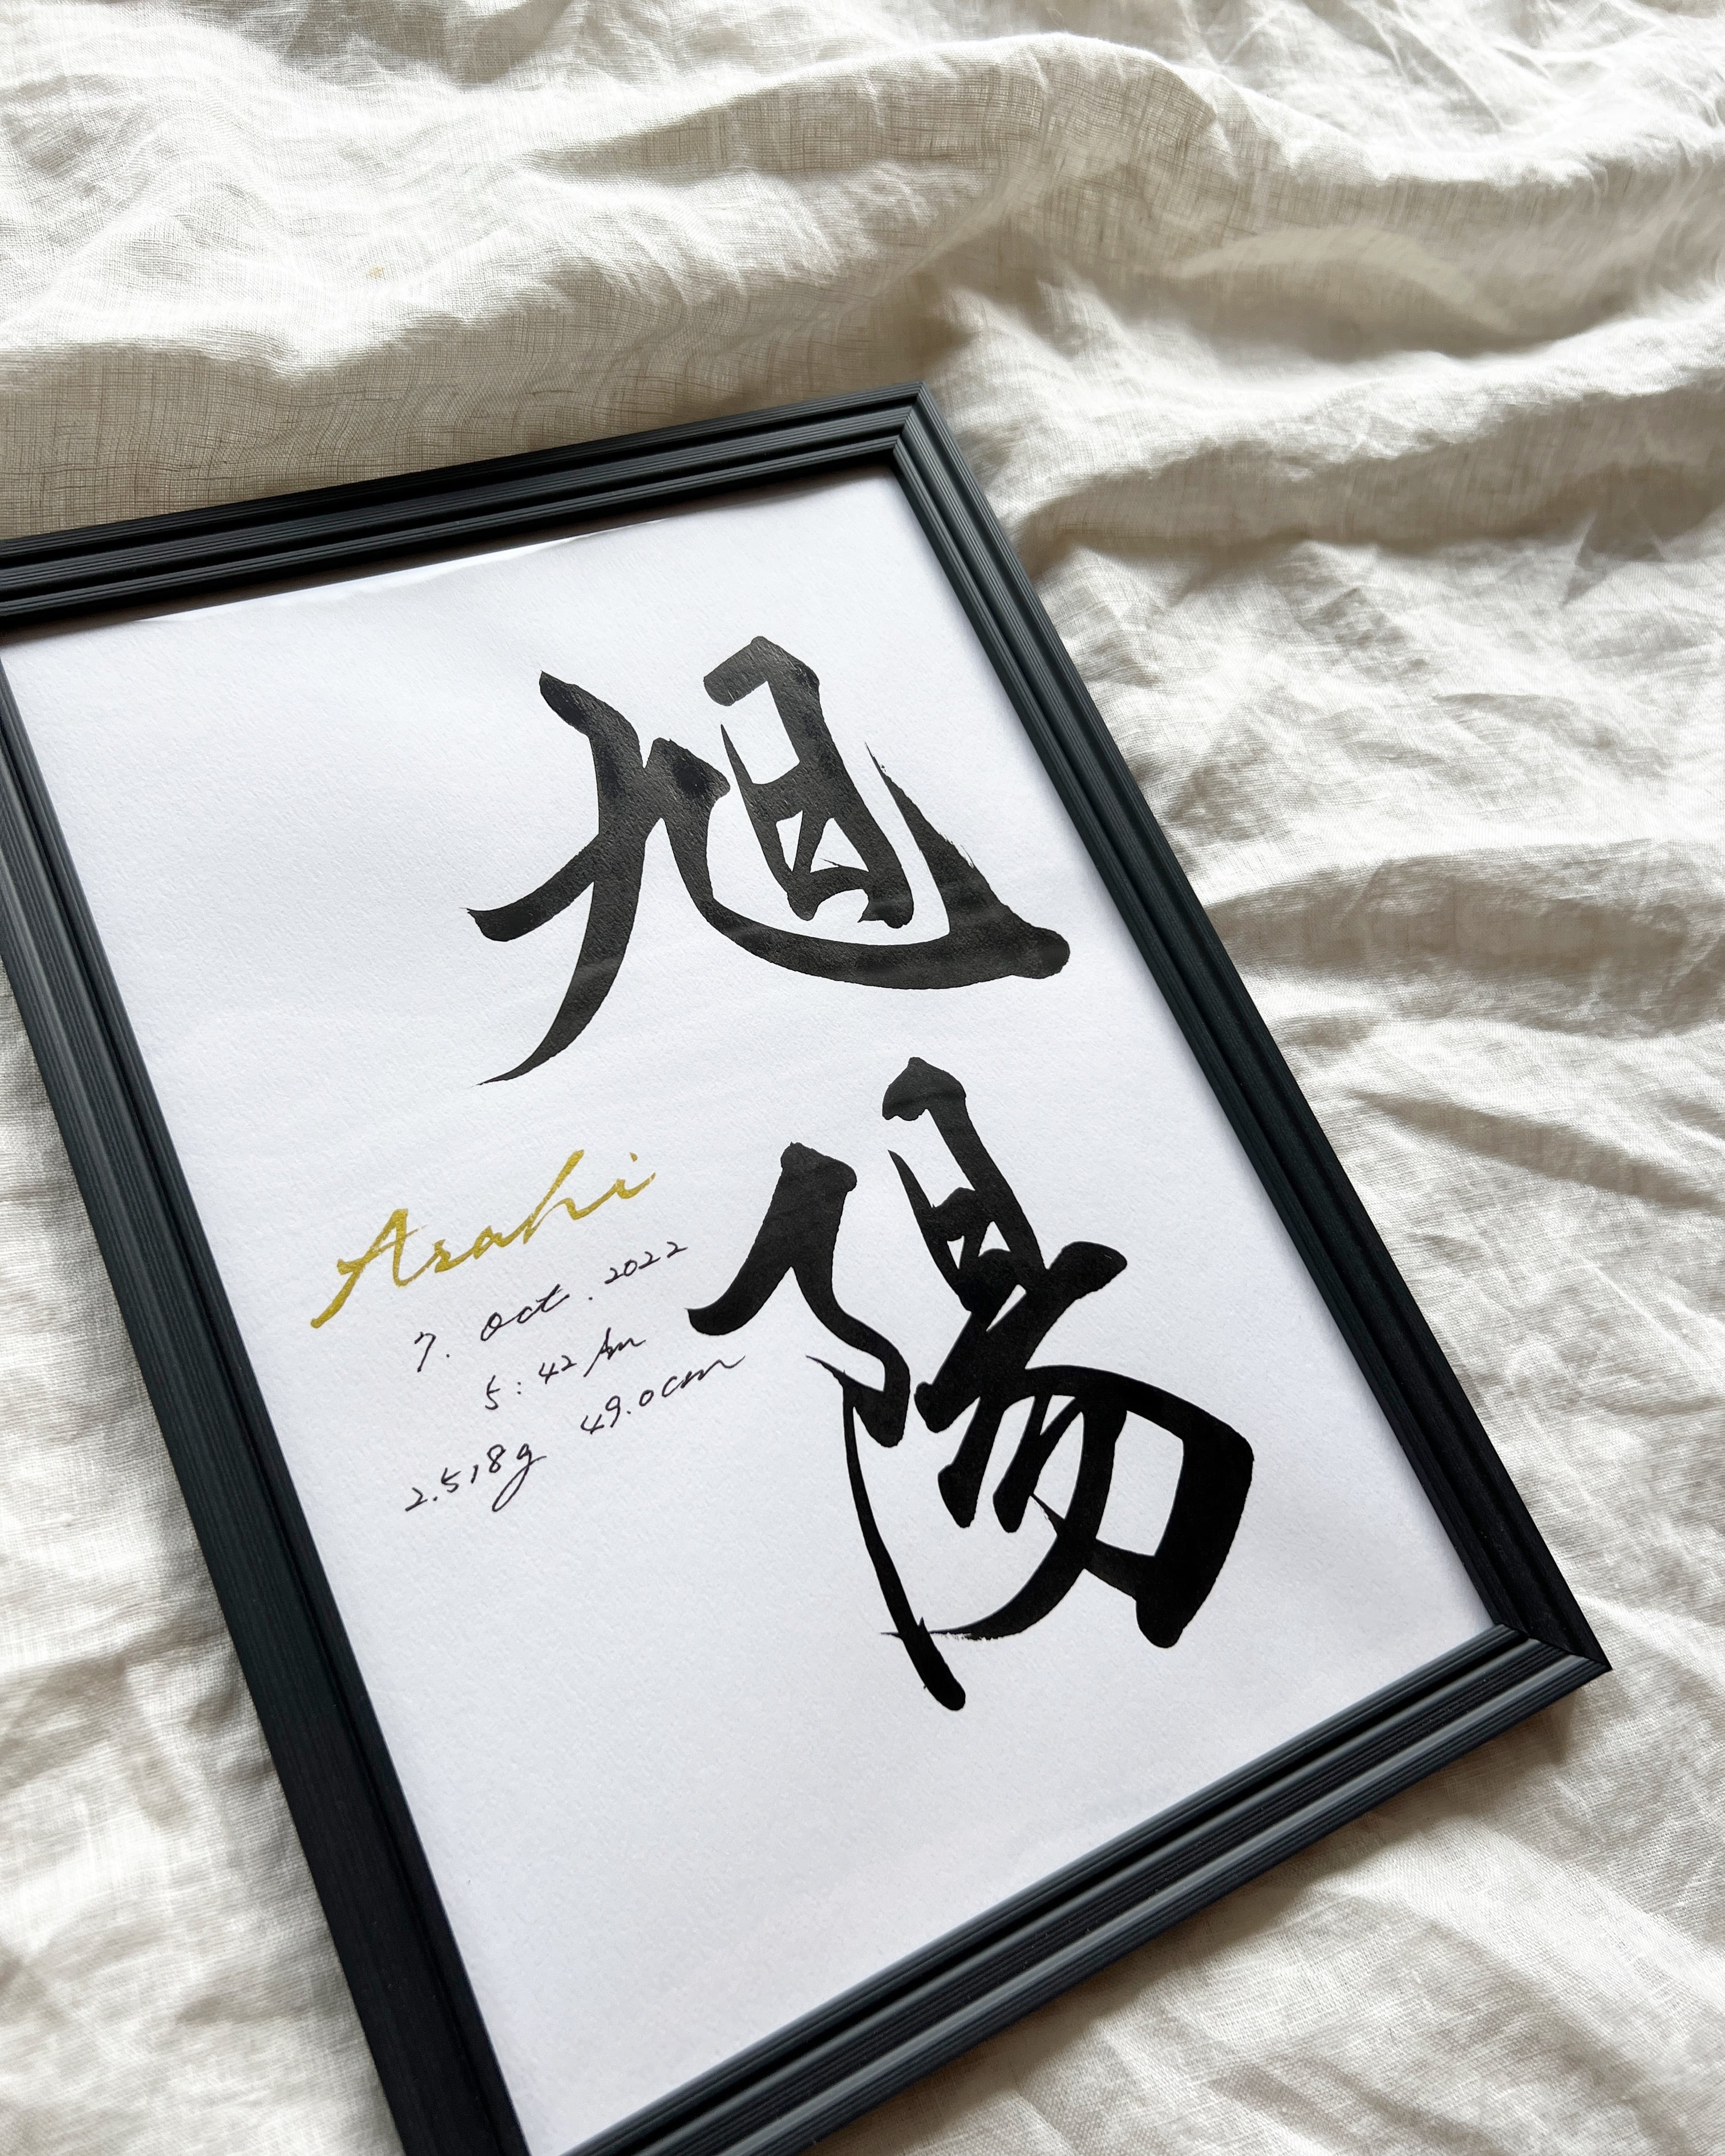 旭陽
Asahi
7. Oct. 2022
5:42 Am
2.518g 49.0cm